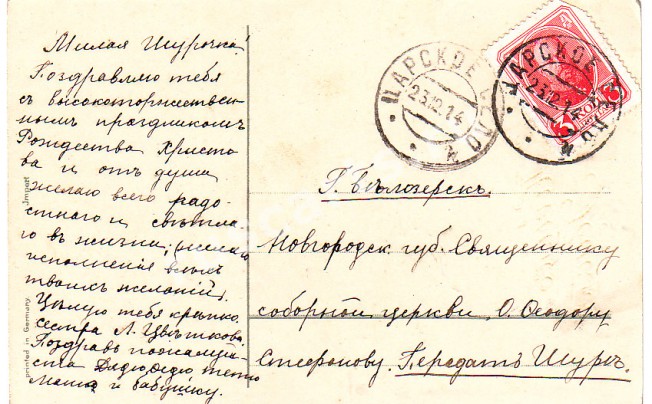 Милая Шурочка!
Поздравляю тебя
съ высокоторжествен-
нымъ праздникомъ
Рождества Христо
ва и отъ души
желаю всего радо-
стнаго и свѣтла-
го въ жизни,
исполненія всѣхъ
твоихъ желаній.
Цѣлую тебя крѣпко.
Сестра Л. Цвѣткова.
Поздравь пожалуй-
ста Дядю, тетю
и бабушку.
printed in Germany.
Import
ЦАРСКОЕ СЕЛО
23.12.14
ЦАРСКОЕ СЕЛО
23.12.1
3
КОП
Г. Бѣлозерскъ.
Новгородск. губ. Священнику
соборной церкви, О. Ѳеодору
Стефанову. Передать Шурѣ.